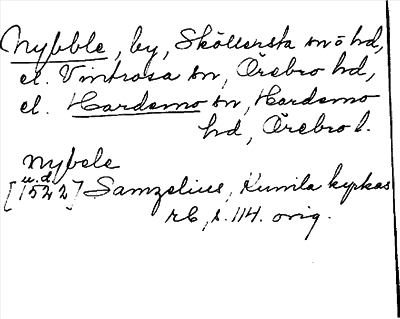 Nybble, by, Sköllersta sn o hd,
el. Vintrosa sn, Örebro hd,
el. Hardemo sn, Hardemo
hd, Örebro l.
nybele
u.d.
[1542] Samzelius, Kumla kyrkas
rb, s. 114. orig.